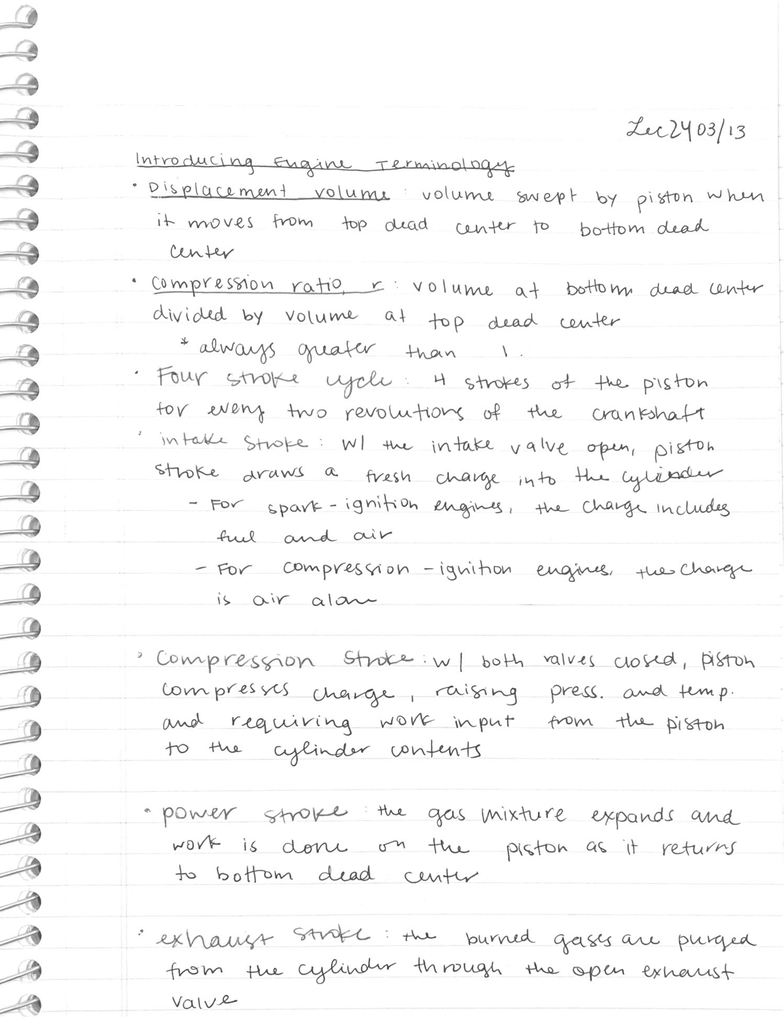 Lec 24 03/13
Introducing Engine Terminology
• Displacement volume: volume swept by piston when
it moves from top dead center to bottom dead
center
• Compression ratio, r: volume at bottom dead center
divided by volume at top dead center
* always greater than 1.
• Four stroke cycle: 4 strokes of the piston
for every two revolutions of the crankshaft
• intake stroke: w/ the intake valve open, piston
stroke draws a fresh charge into the cylinder
- For spark-ignition engines, the charge includes
fuel and air
- For compression-ignition engines, the charge
is air alone
• Compression Stroke: w/ both valves closed, piston
compresses charge, raising press. and temp.
and requiring work input from the piston
to the cylinder contents
• power stroke: the gas mixture expands and
work is done on the piston as it returns
to bottom dead center
• exhaust stroke: the burned gases are purged
from the cylinder through the open exhaust
valve